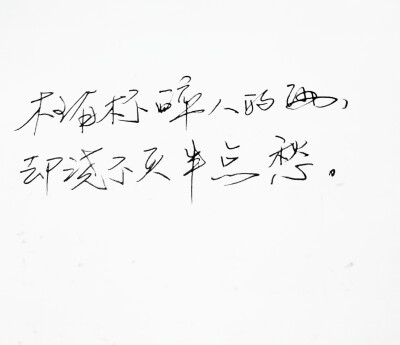 枉有杯醉人的酒，
却浇不灭半点愁。